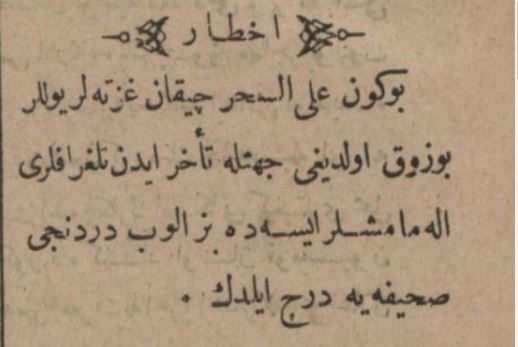 اخطار
بوكون على السحر چيقان غزته لر يوللر
بوزوق اولديغى جهتله تأخر ايدن تلغرافلرى
اله مامشلر ايسه ده بز الوب دردنجى
صحيفه يه درج ايلدك .